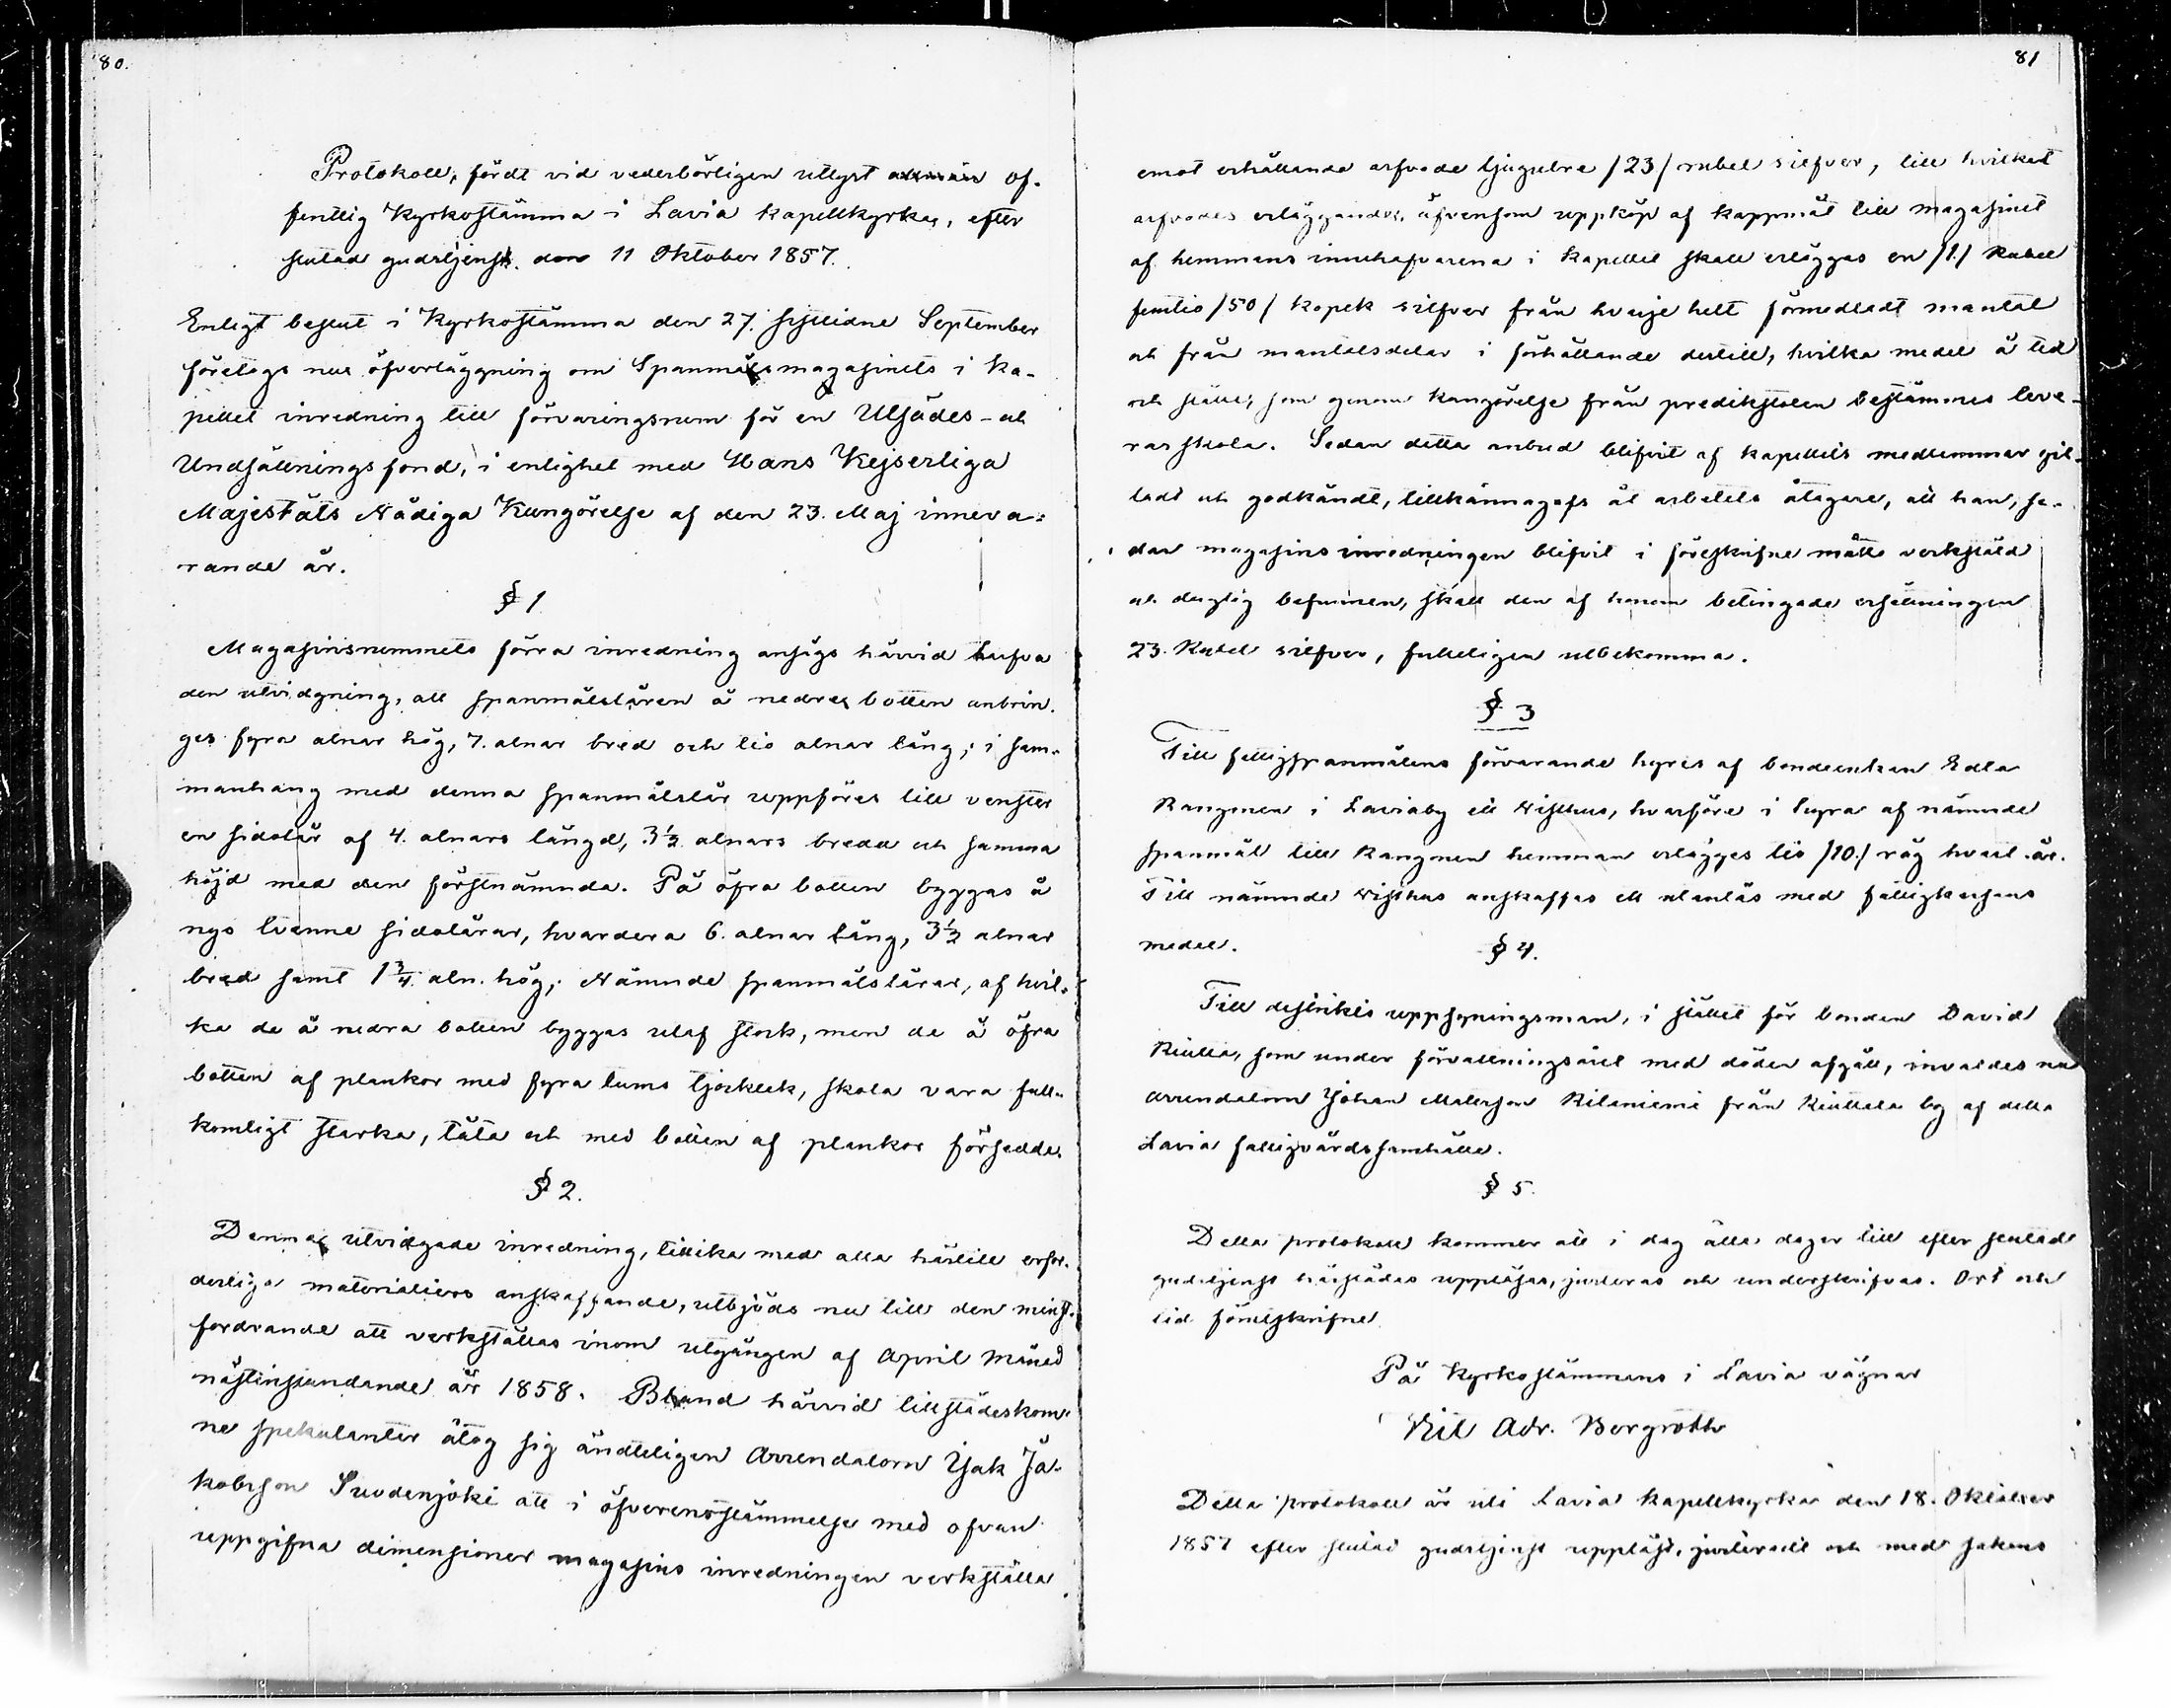 80.
Protokoll, fördt vid vederbörligen utlyst allmän of-
fentlig Kyrkostämma i Lavia kapellkyrka, efter
slutad gudstjenst. den 11 Oktober 1857.
Enligt beslut i Kyrkostämma den 27. sistlidne September
företogs nu öfverläggning om Spanmålsmagasinets i Ka-
pellet inredning till förvaringsrum för en Utsädes- och
Undsättningsfond, i enlighet med Hans Kejserliga
Majestäts Nådiga Kungörelse af den 23. Maj inneva-
rande år.
§ 1
Magasinsrummets förra inredning ansågs härvid hafva
den utvidgning, att spanmålslåren å nedre botten anbrin-
ges fyra alnar hög, 7. alnar bred och tio alnar lång; i sam-
manhang med denna spanmålslår uppföres till venster
en sidolår af 4. alnars längd, 3½ alnars bredd och samma
höjd med den förstnämnda. På öfra botten byggas å
nyo tvenne sidolårar, hvardera 6. alnar lång, 3½ alnar
bred samt 1¾ aln. hög; Nämnde spanmålslårar, af hvil-
ka de å nedra botten byggas utaf stock, men de å öfra
botten af plankor med fyra tums tjocklek, skola vara full-
komligt starka, täta och med botten af plankor försedde.
§ 2.
Denna utvidgade inredning, tillika med alla härtill erfor-
derliga materialiers anskaffande, utbjöds nu till den minst
fordrande att verkställas inom utgången af April månad
nästinstundande år 1858. Bland härvid tillstädeskom-
ne spekulanter åtog sig ändteligen Arrendatorn Isak Ja-
kobsson Suodenjoki att i öfverensstämmelse med ofvan
uppgifna dimensioner magasins inredningen verkställa
81
emot erhållande arfvode tjugutre /23/ rubel silfver, till hvilket
arfvodes erläggande, äfvensom uppköp af kappmål till magasinet
af hemmans innehafvarena i kapellet skall erläggas en /1/ Rubel
femtio /50/ kopek silfver från hvarje helt förmedladt mantal
och från mantalsdelar i förhållande dertill, hvilka medel å tid
och ställe, som genom kungörelse från predikstolen bestämmes leve-
ras skola. Sedan detta anbud blifvit af kapellets medlemmar gil-
ladt och godkändt, tillkännagafs åt arbetets åtagare, att han, se-
dan magasins inredningen blifvit i föreskrifne mått verkstäld
och duglig befunnen, skall den af honom betingade ersättningen
23. Rubel silfver, fulleligen utbekomma.
§ 3
Till fattigspanmålens förvarande hyres af bondeenkan Edla
Kangmen i Laviaby ett Visthus, hvarföre i hyra af nämnde
spanmål till Kangmen hemman erlägges tio /10./ råg hvart år.
Till nämnde visthus anskaffas ett utanlås med fattigkassans
medel.
§ 4.
Till distrikts uppsyningsman, i stället för bonden David
Kiulla, som under förvaltningsåret med döden afgått, invaldes nu
arrendatorn Johan Matsson Kitaniemi från Riuttala by af detta
Lavia fattigvårdssamhälle.
§ 5.
Detta protokoll kommer att i dag åtta dagar till efter slutad
gudstjenst härstädes uppläsas, justeras och underskrifvas. Ort och
tid förutskrifne.
På Kyrkostämmans i Lavia vägnar
Vil Adr. Borgroth
Detta protokoll är uti Lavia kapellkyrka den 18. Oktober
1857 efter slutad gudstjenst uppläst, justeradt och med sakens